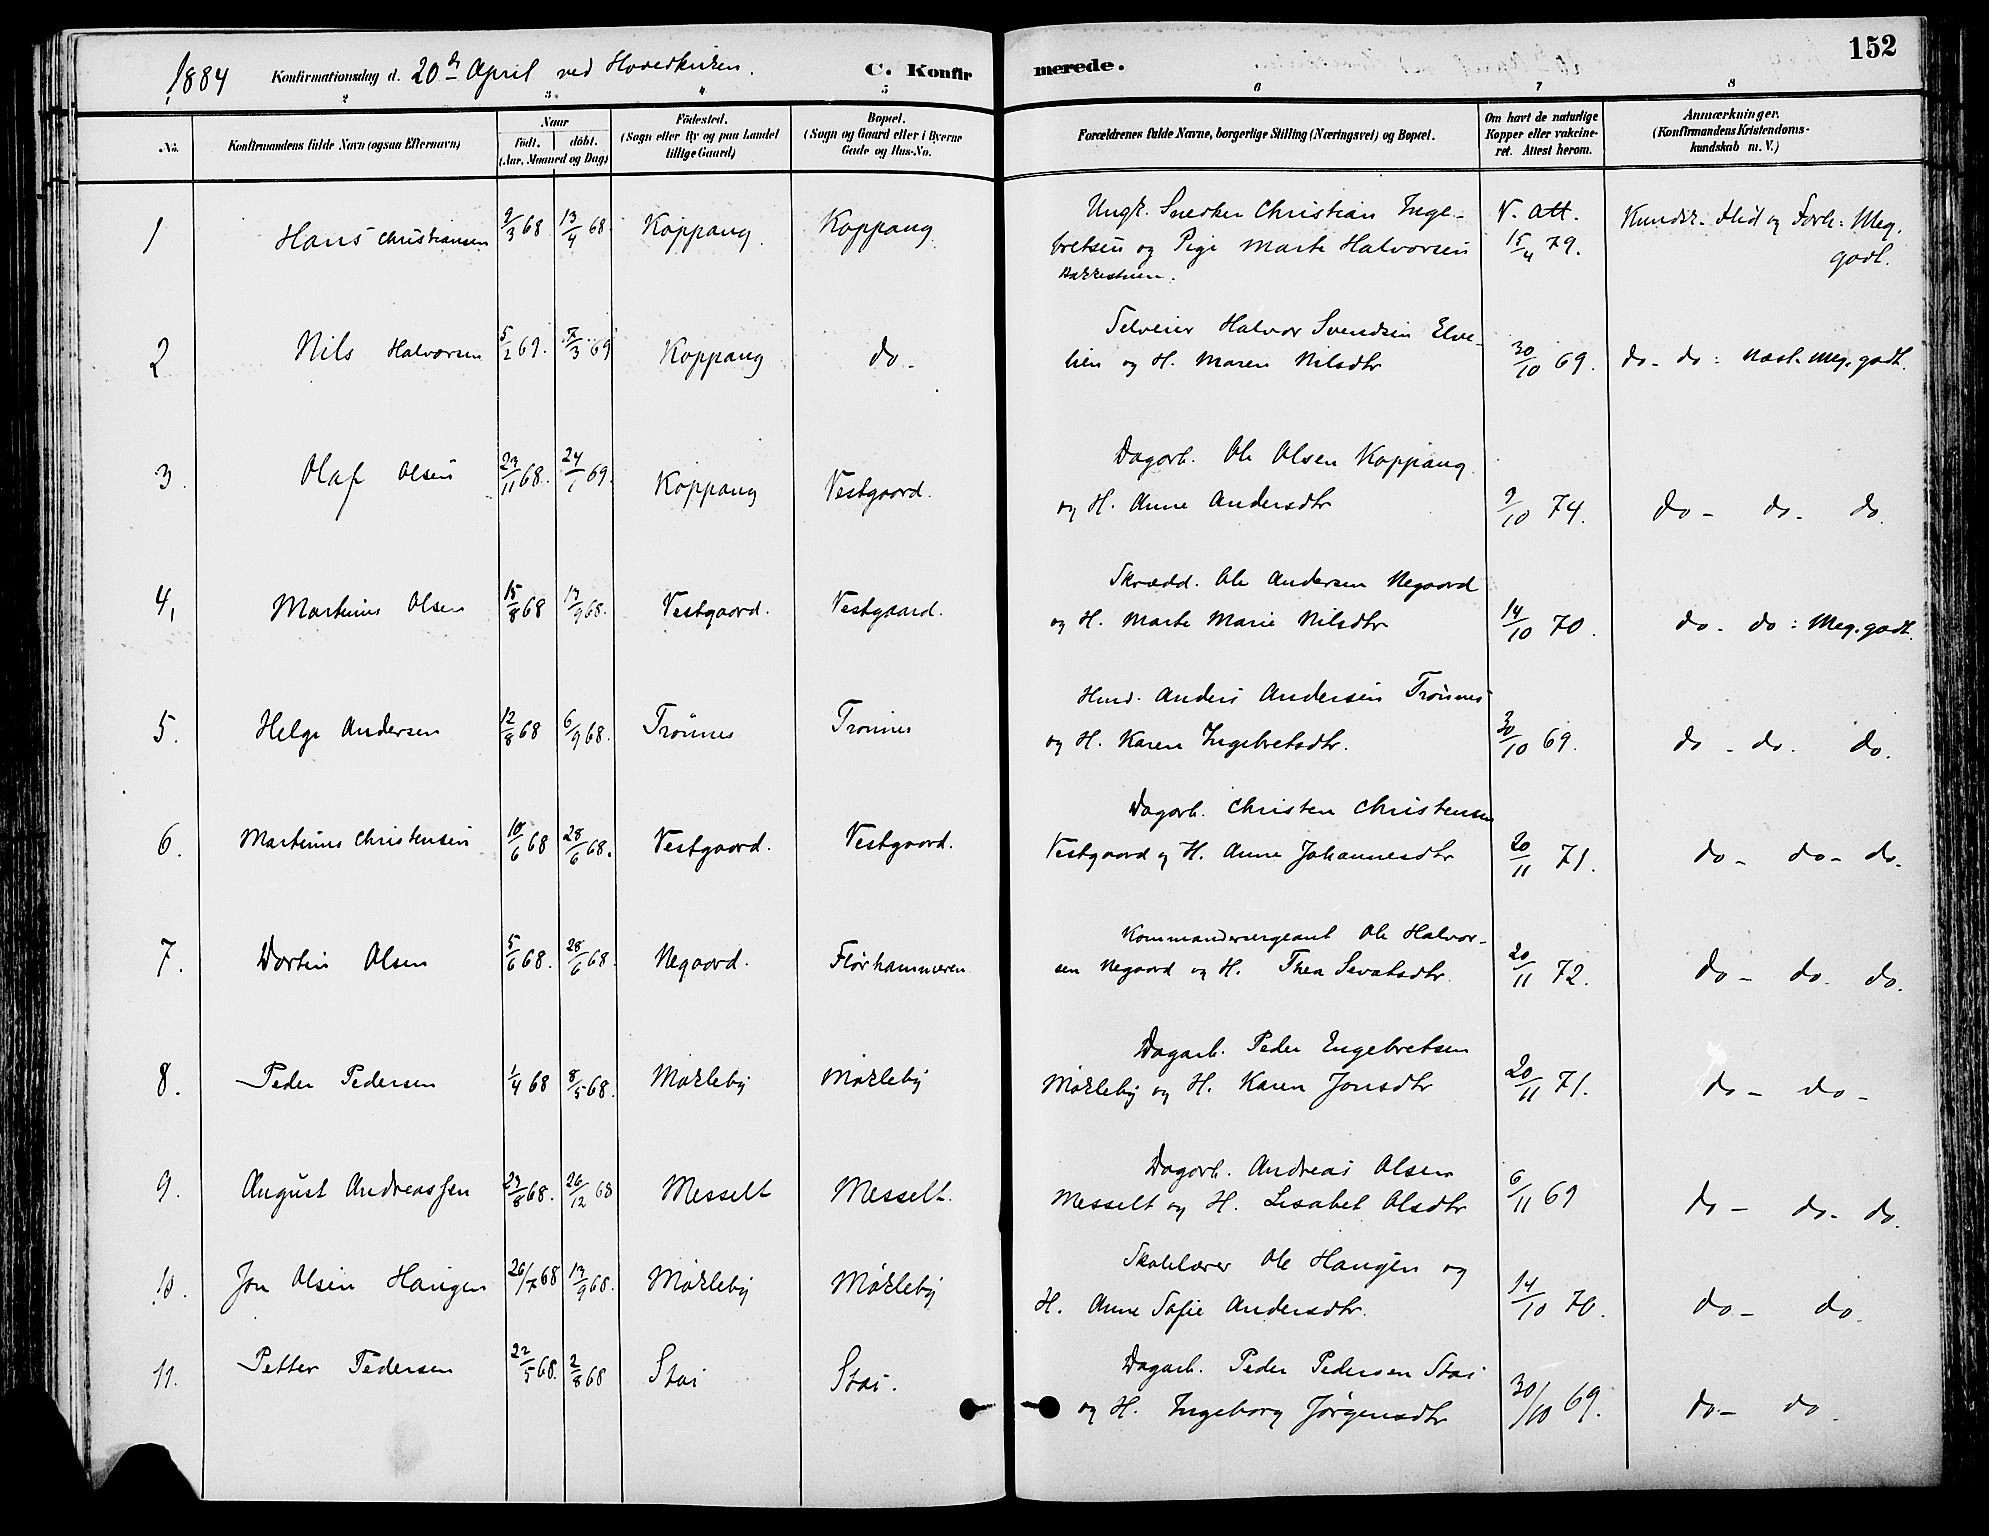 1884 Konfirmationsdag d. 20de April ved Hovedkirken. C. Konfirmerede. 152
2 3 4 5 6 7 8
No. Konfirmandens fulde Navn (ogsaa Efternavn) Naar födt. döbt. (Aar, Maaned og Dag) Födested. (Sogn eller By og paa Landet tillige Gaard) Bopæl. (Sogn og Gaard eller i Byerne Gade og Hus-No. Forældrenes fulde Navne, borgerlige Stilling (Næringsvei) og Bopæl. Om havt de naturlige Kopper eller vakcineret. Attest herom. Anmærkninger. (Konfirmandens Kristendomskundskab m. V.)
1 Hans Christiansen 9/3 68 13/4 68 Koppang Koppang Ungk. Snedker Christian Inge-
bretsen og Pige Marte Halvorsen V. Att. 15/4 79. Kundsk. Flid og Forh: Meg. godt.
2 Nils Halvorsen 5/2 69. 7/3 69 Koppang do - Selveier Halvor Svendsen Elve-
lien og H. Maren Nilsdtr 30/10 69. do - do : Næst. meg. godt.
3. Olaf Olsen 23/11 68. 24/1 69. Koppang Vestgaard. Dagarb. Ole Olsen Koppang
og H. Anne Andersdtr 9/10 74. do - do - do.
4, Martinus Olsen 15/8 68 13/9 68. Vestgaard. Vestgaard. Skrædd. Ole Andersen Negaard
og H. Marte Marie Nilsdtr 14/10 70. do - do : Meg. godt.
5. Helge Andersen 12/8 68 6/9 68. Trönnes Trönnes Husd. Anders Andersen Trönnes
og H. Karen Ingebretsdtr. 30/10 69. do - do. do.
6. Martinus Christensen 10/6 68 28/6 68. Vestgaard. Vestgaard. Dagarb. Christen Christensen
Vestgaard og H. Anne Johannesdtr 20/11 71. do - do - do.
7. Dortin Olsen 5/6 68. 28/6 68. Negaard. Flörhammeren Kommandersergeant Ole Halvor-
sen Negaard og H. Thea Sivatsdtr. 20/11 72. do - do. do.
8. Peder Pedersen 1/4 68 8/5 68. Mörleby Mörleby Dagarb. Peder Engebretsen
Mörleby og H. Karen Jonsdtr 20/11 71. do - do -
9. August Andreassen 23/8 68. 26/12 68 Messelt Messelt. Dagarb. Andreas Olsen
Messelt og H. Lisabet Olsdtr 6/11 69 do - do - do.
10. Jon Olsen Haugen 26/7 68 13/9 68. Mörleby Mörleby Skolelærer Ole Haugen og
H. Anne Sofie Andersdtr. 14/10 70. do - do.
11. Petter Pedersen 22/5 68. 2/8 68 Stai Stai. Dagarb. Peder Pedersen Stai
og H. Ingeborg Jørgensdtr 30/10 69. do - do.